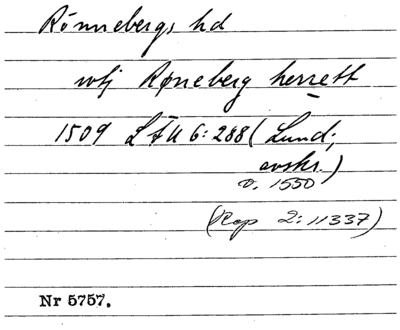 Rönnebergs hd
wtj Røneberg herrett
1509 LÄU 6:288 (Lund;
avskr.)
o. 1550
(Rep 2:11337)
Nr 5757.